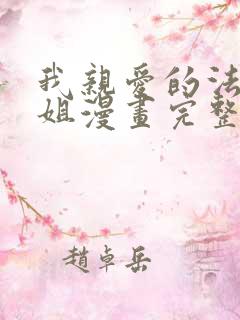 我親愛的法
姐漫畫完整
趙卓岳